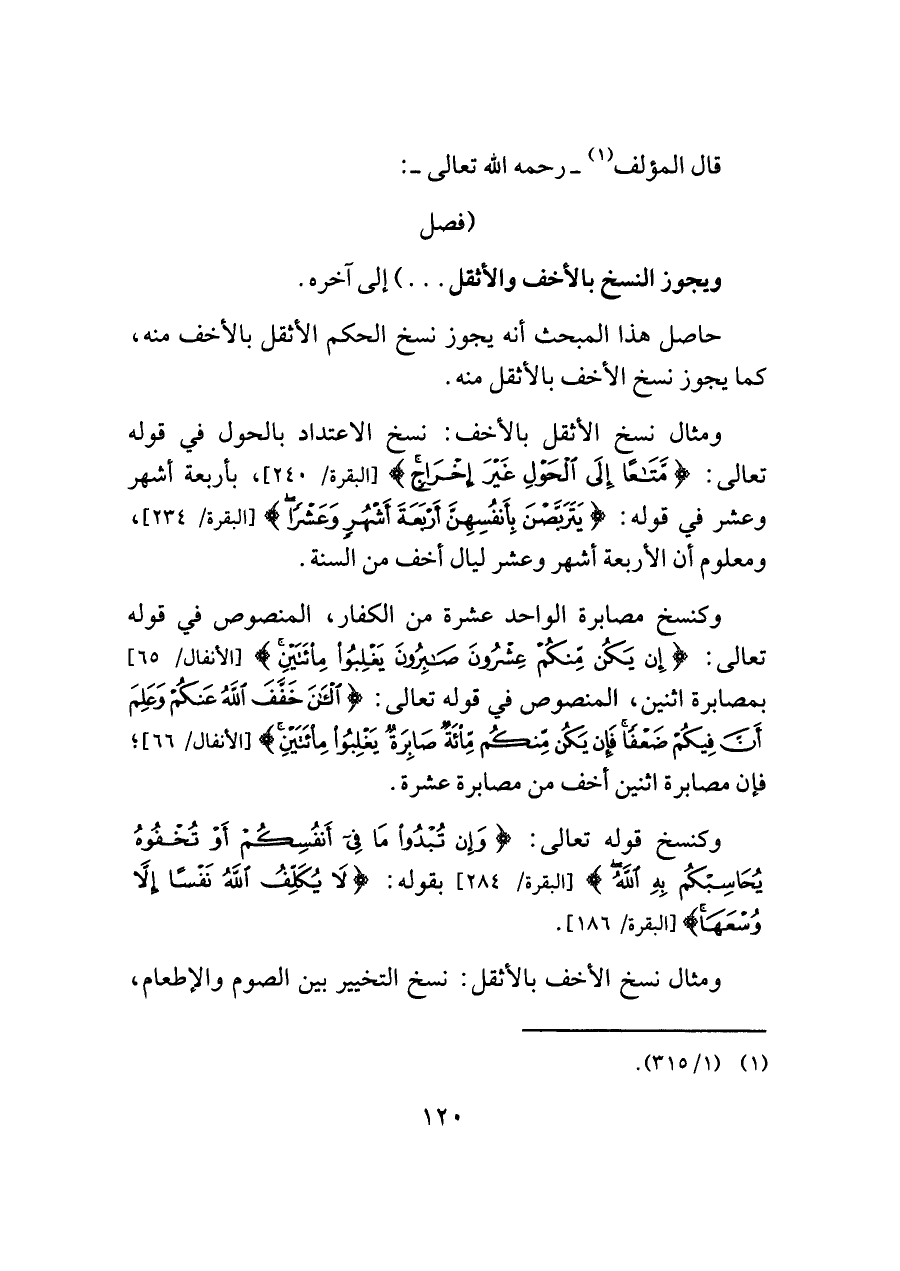 قال المؤلف(١) ـ رحمه الله تعالى ـ:
(فصل
ويجوز النسخ بالأخف والأثقل...) إلى آخره.
حاصل هذا المبحث أنه يجوز نسخ الحكم الأثقل بالأخف منه،
كما يجوز نسخ الأخف بالأثقل منه.
ومثال نسخ الأثقل بالأخف: نسخ الاعتداد بالحول في قوله
تعالى: ﴿مَّتَٰعًا إِلَى ٱلْحَوْلِ غَيْرَ إِخْرَاجٍۚ﴾ [البقرة/ ٢٤٠]، بأربعة أشهر
وعشر في قوله: ﴿يَتَرَبَّصْنَ بِأَنفُسِهِنَّ أَرْبَعَةَ أَشْهُرٍ وَعَشْرًاۖ﴾ [البقرة/ ٢٣٤]،
ومعلوم أن الأربعة أشهر وعشر ليال أخف من السنة.
وكنسخ مصابرة الواحد عشرة من الكفار، المنصوص في قوله
تعالى: ﴿إِن يَكُن مِّنكُمْ عِشْرُونَ صَٰبِرُونَ يَغْلِبُوا۟ مِا۟ئَتَيْنِۚ﴾ [الأنفال/ ٦٥]
بمصابرة اثنين، المنصوص في قوله تعالى: ﴿ٱلْـَٰٔنَ خَفَّفَ ٱللَّهُ عَنكُمْ وَعَلِمَ
أَنَّ فِيكُمْ ضَعْفًاۚ فَإِن يَكُن مِّنكُم مِّا۟ئَةٌ صَابِرَةٌ يَغْلِبُوا۟ مِا۟ئَتَيْنِۚ﴾ [الأنفال/ ٦٦]؛
فإن مصابرة اثنين أخف من مصابرة عشرة.
وكنسخ قوله تعالى: ﴿وَإِن تُبْدُوا۟ مَا فِىٓ أَنفُسِكُمْ أَوْ تُخْفُوهُ
يُحَاسِبْكُم بِهِ ٱللَّهُۖ﴾ [البقرة/ ٢٨٤] بقوله: ﴿لَا يُكَلِّفُ ٱللَّهُ نَفْسًا إِلَّا
وُسْعَهَاۚ﴾ [البقرة/ ١٨٦].
ومثال نسخ الأخف بالأثقل: نسخ التخيير بين الصوم والإطعام،
(١) (١/ ٣١٥).
١٢٠